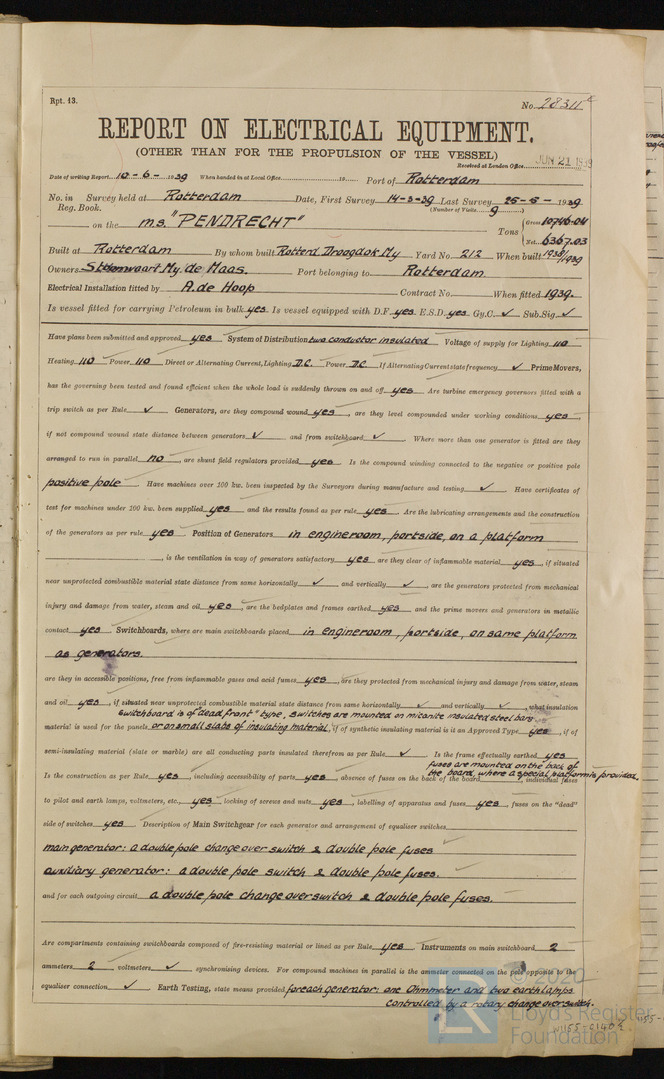 Rpt. 13.
No. 28311
REPORT ON ELECTRICAL EQUIPMENT.
(OTHER THAN FOR THE PROPULSION OF THE VESSEL)
Received at London Office JUN 21 1939
Date of writing Report 10-6-1939 When handed in at Local Office 19 Port of Rotterdam
No. in Survey held at Rotterdam Date, First Survey 14-3-39 Last Survey 25-5-1939
Reg. Book. (Number of Visits 9)
on the m.s. "PENDRECHT" Tons { Gross 10746.04
Net 6367.03
Built at Rotterdam By whom built Rotterd. Droogdok My Yard No. 212 When built 1938/1939
Owners Stoomvaart My. de Maas. Port belonging to Rotterdam
Electrical Installation fitted by A. de Hoop Contract No. When fitted 1939.
Is vessel fitted for carrying Petroleum in bulk yes. Is vessel equipped with D.F. yes. E.S.D. yes. Gy.C. ✓ Sub.Sig. ✓
Have plans been submitted and approved yes System of Distribution two conductor insulated Voltage of supply for Lighting 110
Heating 110 Power 110 Direct or Alternating Current, Lighting D.C. Power D.C. If Alternating Current state frequency ✓ Prime Movers,
has the governing been tested and found efficient when the whole load is suddenly thrown on and off yes Are turbine emergency governors fitted with a
trip switch as per Rule ✓ Generators, are they compound wound yes, are they level compounded under working conditions yes,
if not compound wound state distance between generators ✓ and from switchboard ✓ Where more than one generator is fitted are they
arranged to run in parallel no, are shunt field regulators provided yes Is the compound winding connected to the negative or positive pole
positive pole Have machines over 100 kw. been inspected by the Surveyors during manufacture and testing ✓ Have certificates of
test for machines under 100 kw. been supplied yes and the results found as per rule yes Are the lubricating arrangements and the construction
of the generators as per rule yes Position of Generators in engineroom, portside, on a platform
, is the ventilation in way of generators satisfactory yes are they clear of inflammable material yes, if situated
near unprotected combustible material state distance from same horizontally ✓ and vertically ✓, are the generators protected from mechanical
injury and damage from water, steam and oil yes, are the bedplates and frames earthed yes and the prime movers and generators in metallic
contact yes Switchboards, where are main switchboards placed in engineroom, portside, on same platform
as generators.
are they in accessible positions, free from inflammable gases and acid fumes yes, are they protected from mechanical injury and damage from water, steam
and oil yes, if situated near unprotected combustible material state distance from same horizontally ✓ and vertically ✓, what insulation
switchboard is of "dead front" type, switches are mounted on micanite insulated steel bars
material is used for the panels or on small slabs of insulating material, if of synthetic insulating material is it an Approved Type yes, if of
semi-insulating material (slate or marble) are all conducting parts insulated therefrom as per Rule ✓ Is the frame effectually earthed yes
fuses are mounted on the back of
the board, where a special platform is provided
Is the construction as per Rule yes, including accessibility of parts yes, absence of fuses on the back of the board, individual fuses
to pilot and earth lamps, voltmeters, etc., yes locking of screws and nuts yes, labelling of apparatus and fuses yes, fuses on the "dead"
side of switches yes Description of Main Switchgear for each generator and arrangement of equaliser switches
main generator: a double pole change over switch & double pole fuses
auxiliary generator: a double pole switch & double pole fuses.
and for each outgoing circuit a double pole change over switch & double pole fuses.
Are compartments containing switchboards composed of fire-resisting material or lined as per Rule yes Instruments on main switchboard 2
ammeters 2 voltmeters ✓ synchronising devices. For compound machines in parallel is the ammeter connected on the pole opposite to the
equaliser connection ✓ Earth Testing, state means provided for each generator: one Ohmmeter and two earth lamps
controlled by a rotary change over switch.
© 2020
Lloyd's Register
Foundation